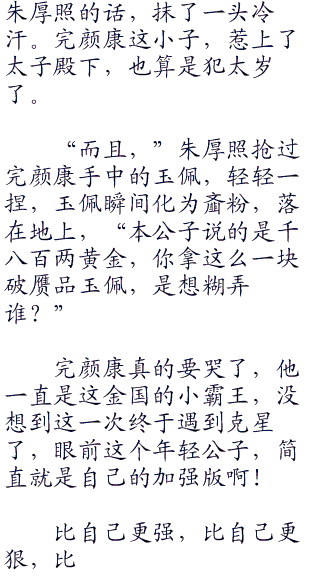 朱厚照的话，抹了一头冷
汗。完颜康这小子，惹上了
太子殿下，也算是犯太岁
了。
“而且，”朱厚照抢过
完颜康手中的玉佩，轻轻一
捏，玉佩瞬间化为齑粉，落
在地上，“本公子说的是千
八百两黄金，你拿这么一块
破赝品玉佩，是想糊弄
谁？”
完颜康真的要哭了，他
一直是这金国的小霸王，没
想到这一次终于遇到克星
了，眼前这个年轻公子，简
直就是自己的加强版啊！
比自己更强，比自己更
狠，比